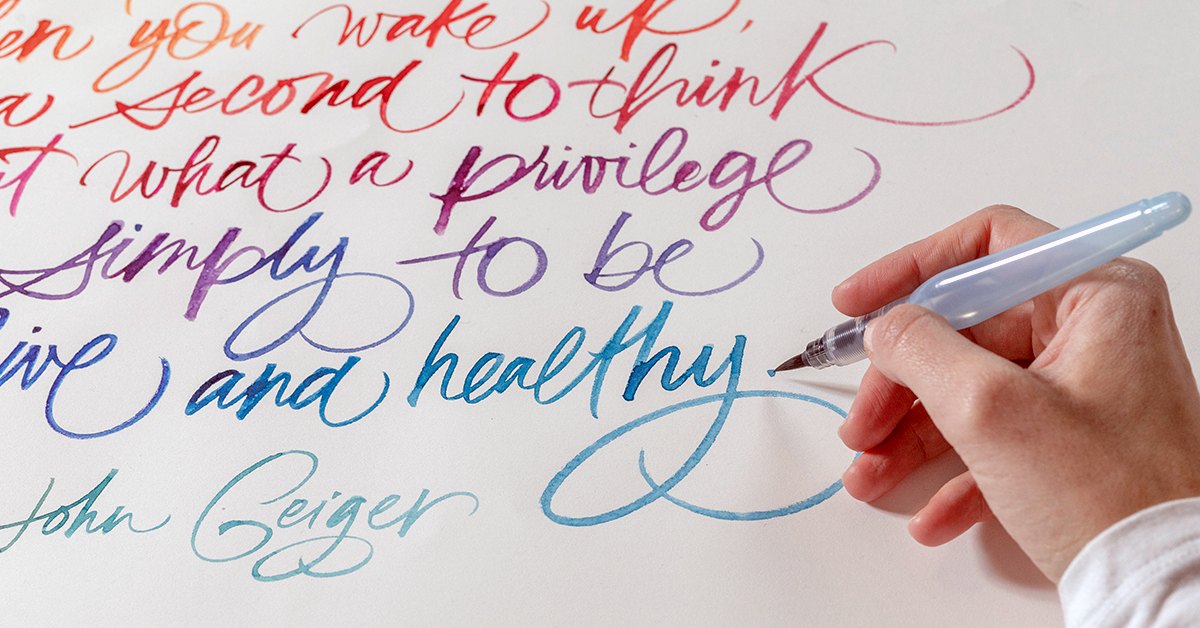 en you wake up,
a second to think
t what a privilege
simply to be
live and healthy.
John Geiger